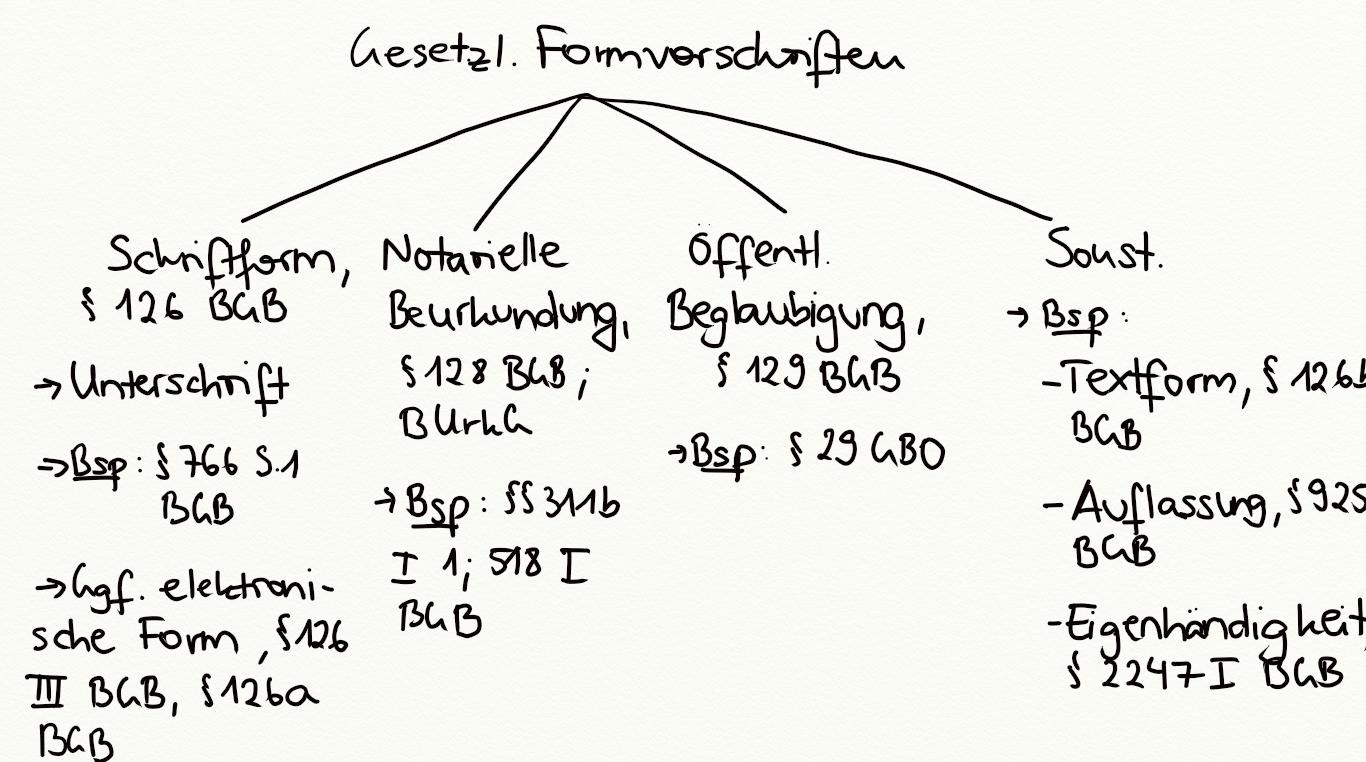 Gesetzl. Formvorschriften
Schriftform,
§ 126 BGB
→ Unterschrift
→ Bsp: § 766 S.1
BGB
→ Ggf. elektroni-
sche Form, § 126
III BGB, § 126a
BGB
Notarielle
Beurkundung,
§ 128 BGB;
BUrkG
→ Bsp: §§ 311b
I 1; 518 I
BGB
Öffentl.
Beglaubigung,
§ 129 BGB
→ Bsp: § 29 GBO
Sonst.
→ Bsp:
- Textform, § 126b
BGB
- Auflassung, § 925
BGB
- Eigenhändigkeit,
§ 2247 I BGB